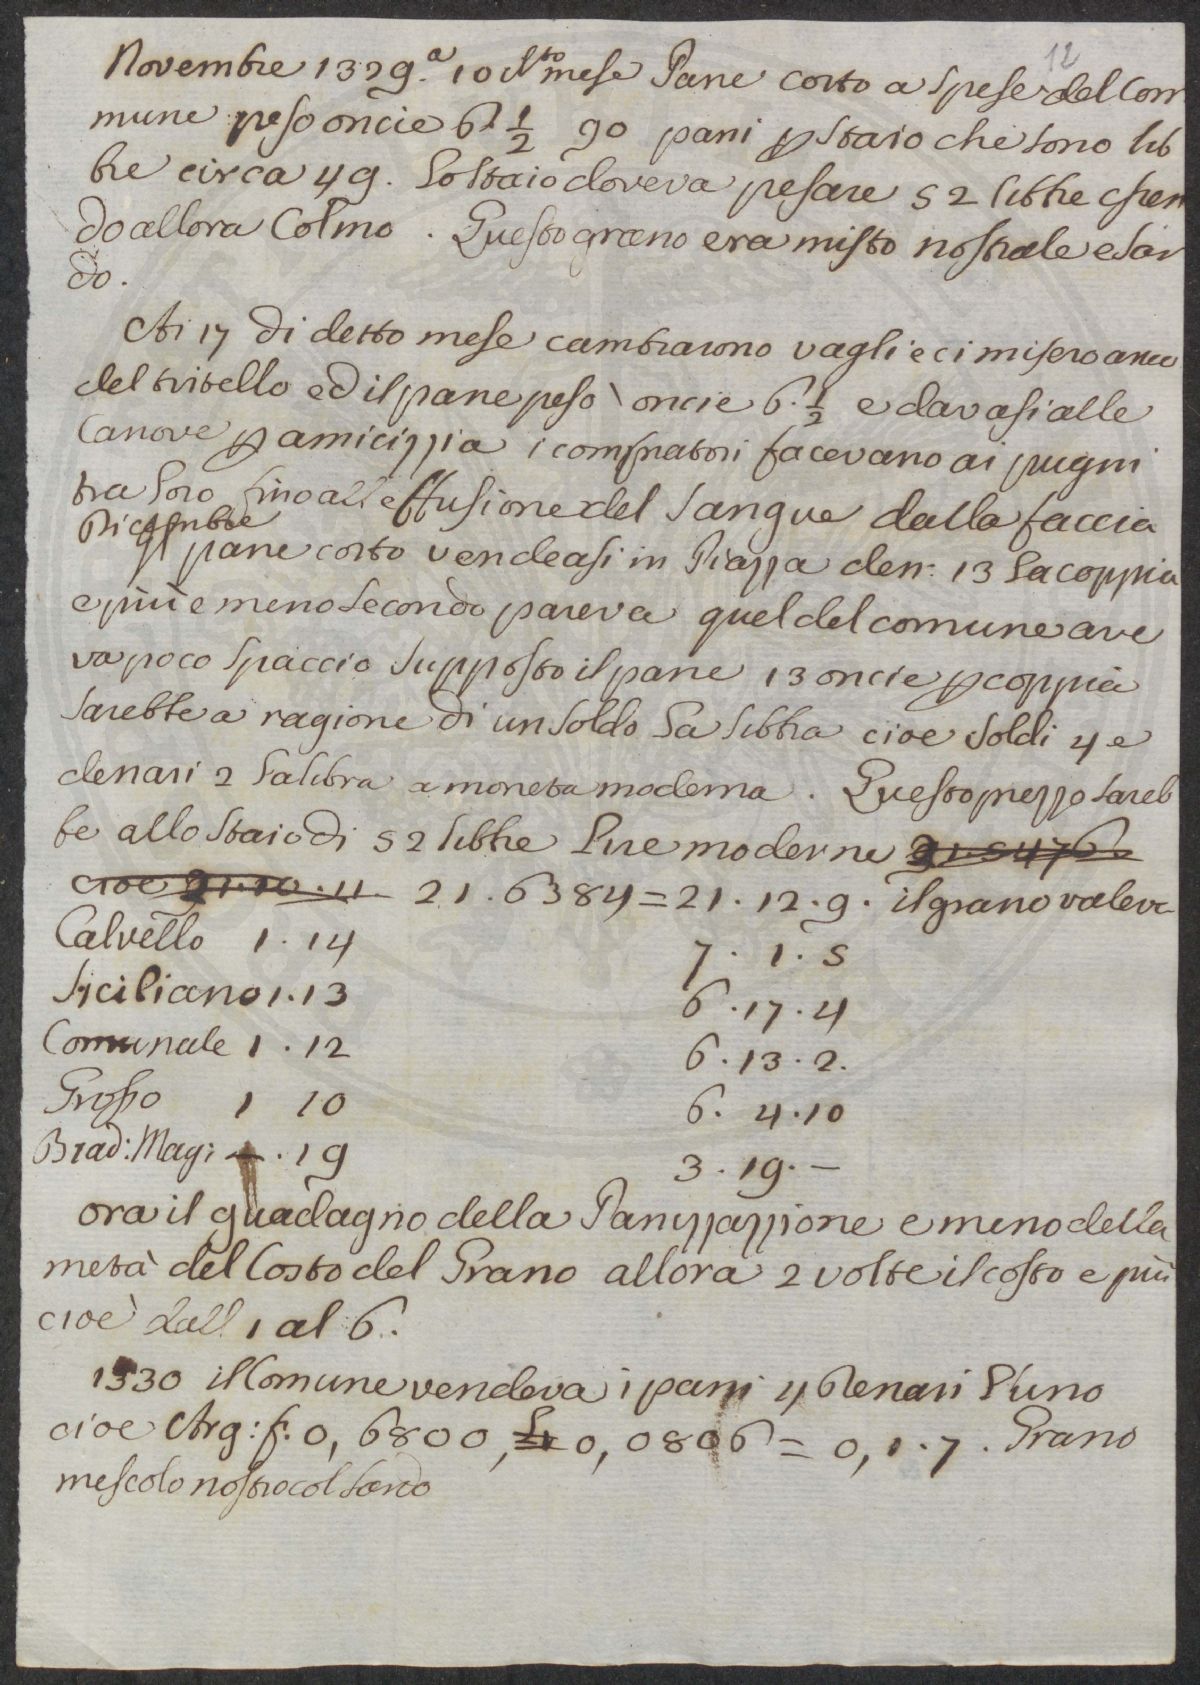 12
Novembre 1329. a 10 d.to mese Pane cotto a spese del Com
mune peso oncie 6 1/2 90 pani p staio che sono lib
bre circa 49. Lo staio doveva pesare 52 libbre essen
do allora Colmo. Questo grano era misto nostrale e sar
do.
Ai 17 di detto mese cambiarono vagli e ci misero anco
del tritello ed il pane pesò oncie 6. 1/2 e davasi alle
Canove p amicizzia i compratori facevano ai pugni
tra loro fino all effusione del sangue dalla faccia
Dicembre
Il pane cotto vendeasi in Piazza den: 13 la coppia
e più e meno secondo pareva quel del comune ave
va poco spaccio supposto il pane 13 oncie p coppia
sarebbe a ragione di un soldo la libbra cioe soldi 4 e
denari 2 la libra a moneta moderna. Questo prezzo sareb
be allo staio di 52 libbre Lire moderne 21.5476.
cioe 21.10.11 21.6384=21.12.9. il grano valeva
Calvello 1.14 7.1.5
Siciliano 1.13 6.17.4
Comunale 1.12 6.13.2.
Grosso 1 10 6.4.10
Biad: Magi —.19 3.19.—
ora il guadagno della Panizzazzione e meno della
metà del Costo del Grano allora 2 volte il costo e più
cioè dall 1 al 6.
1330 il Comune vendeva i pani 4 denari l'uno
cioe Arg: f. 0,6800, L 0,0806 = 0,1.7. Grano
mescolo nostro col sardo